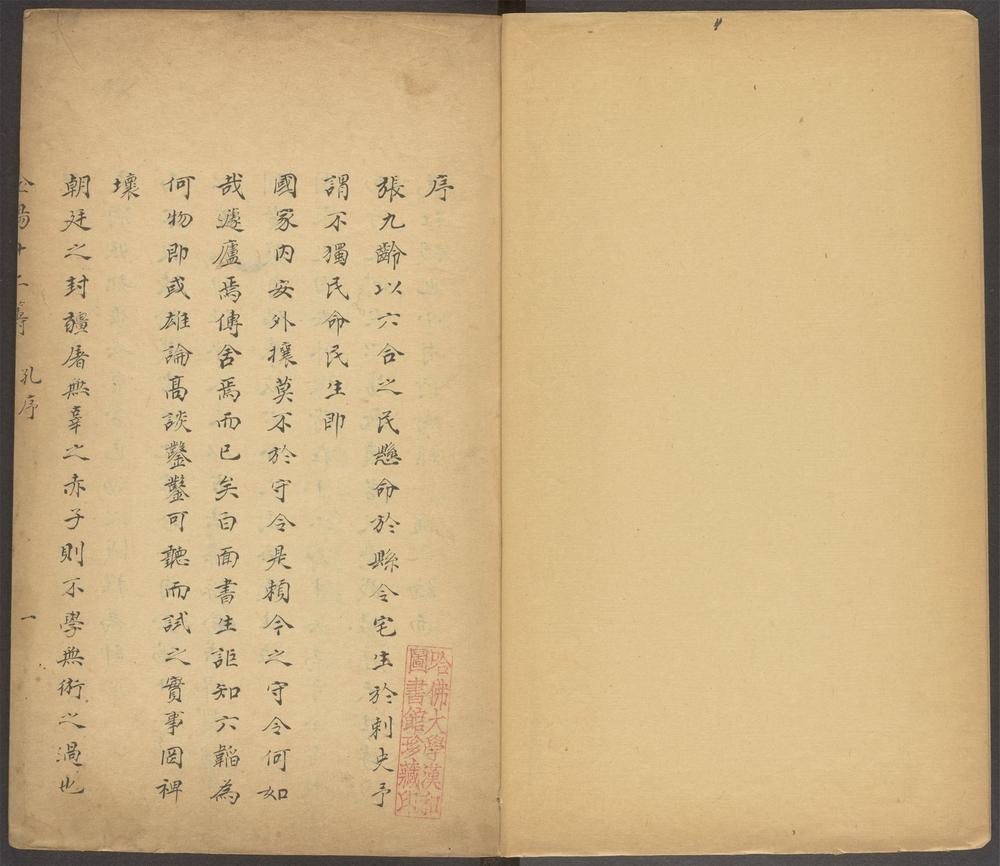 序
張九齡以六合之民懸命於縣令宅生於刺史予
謂不獨民命民生即
國家内安外攘莫不於守令是頼今之守令何如
哉蘧廬焉傳舍焉而已矣白面書生詎知六韜為
何物即或雄論髙談鑿鑿可聽而試之實事罔裨
壞
朝廷之封疆屠無辜之赤子則不學無術之過也
金湯十二籌
孔序
一
哈佛大學漢和
圖書館珍藏印